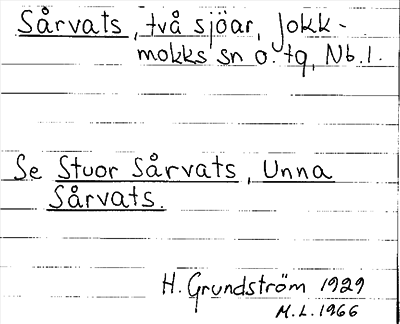 Sårvats, två sjöar, Jokk-
mokks sn o. tg, Nb. l.
Se Stuor Sårvats, Unna
Sårvats.
H. Grundström 1929
M.L. 1966